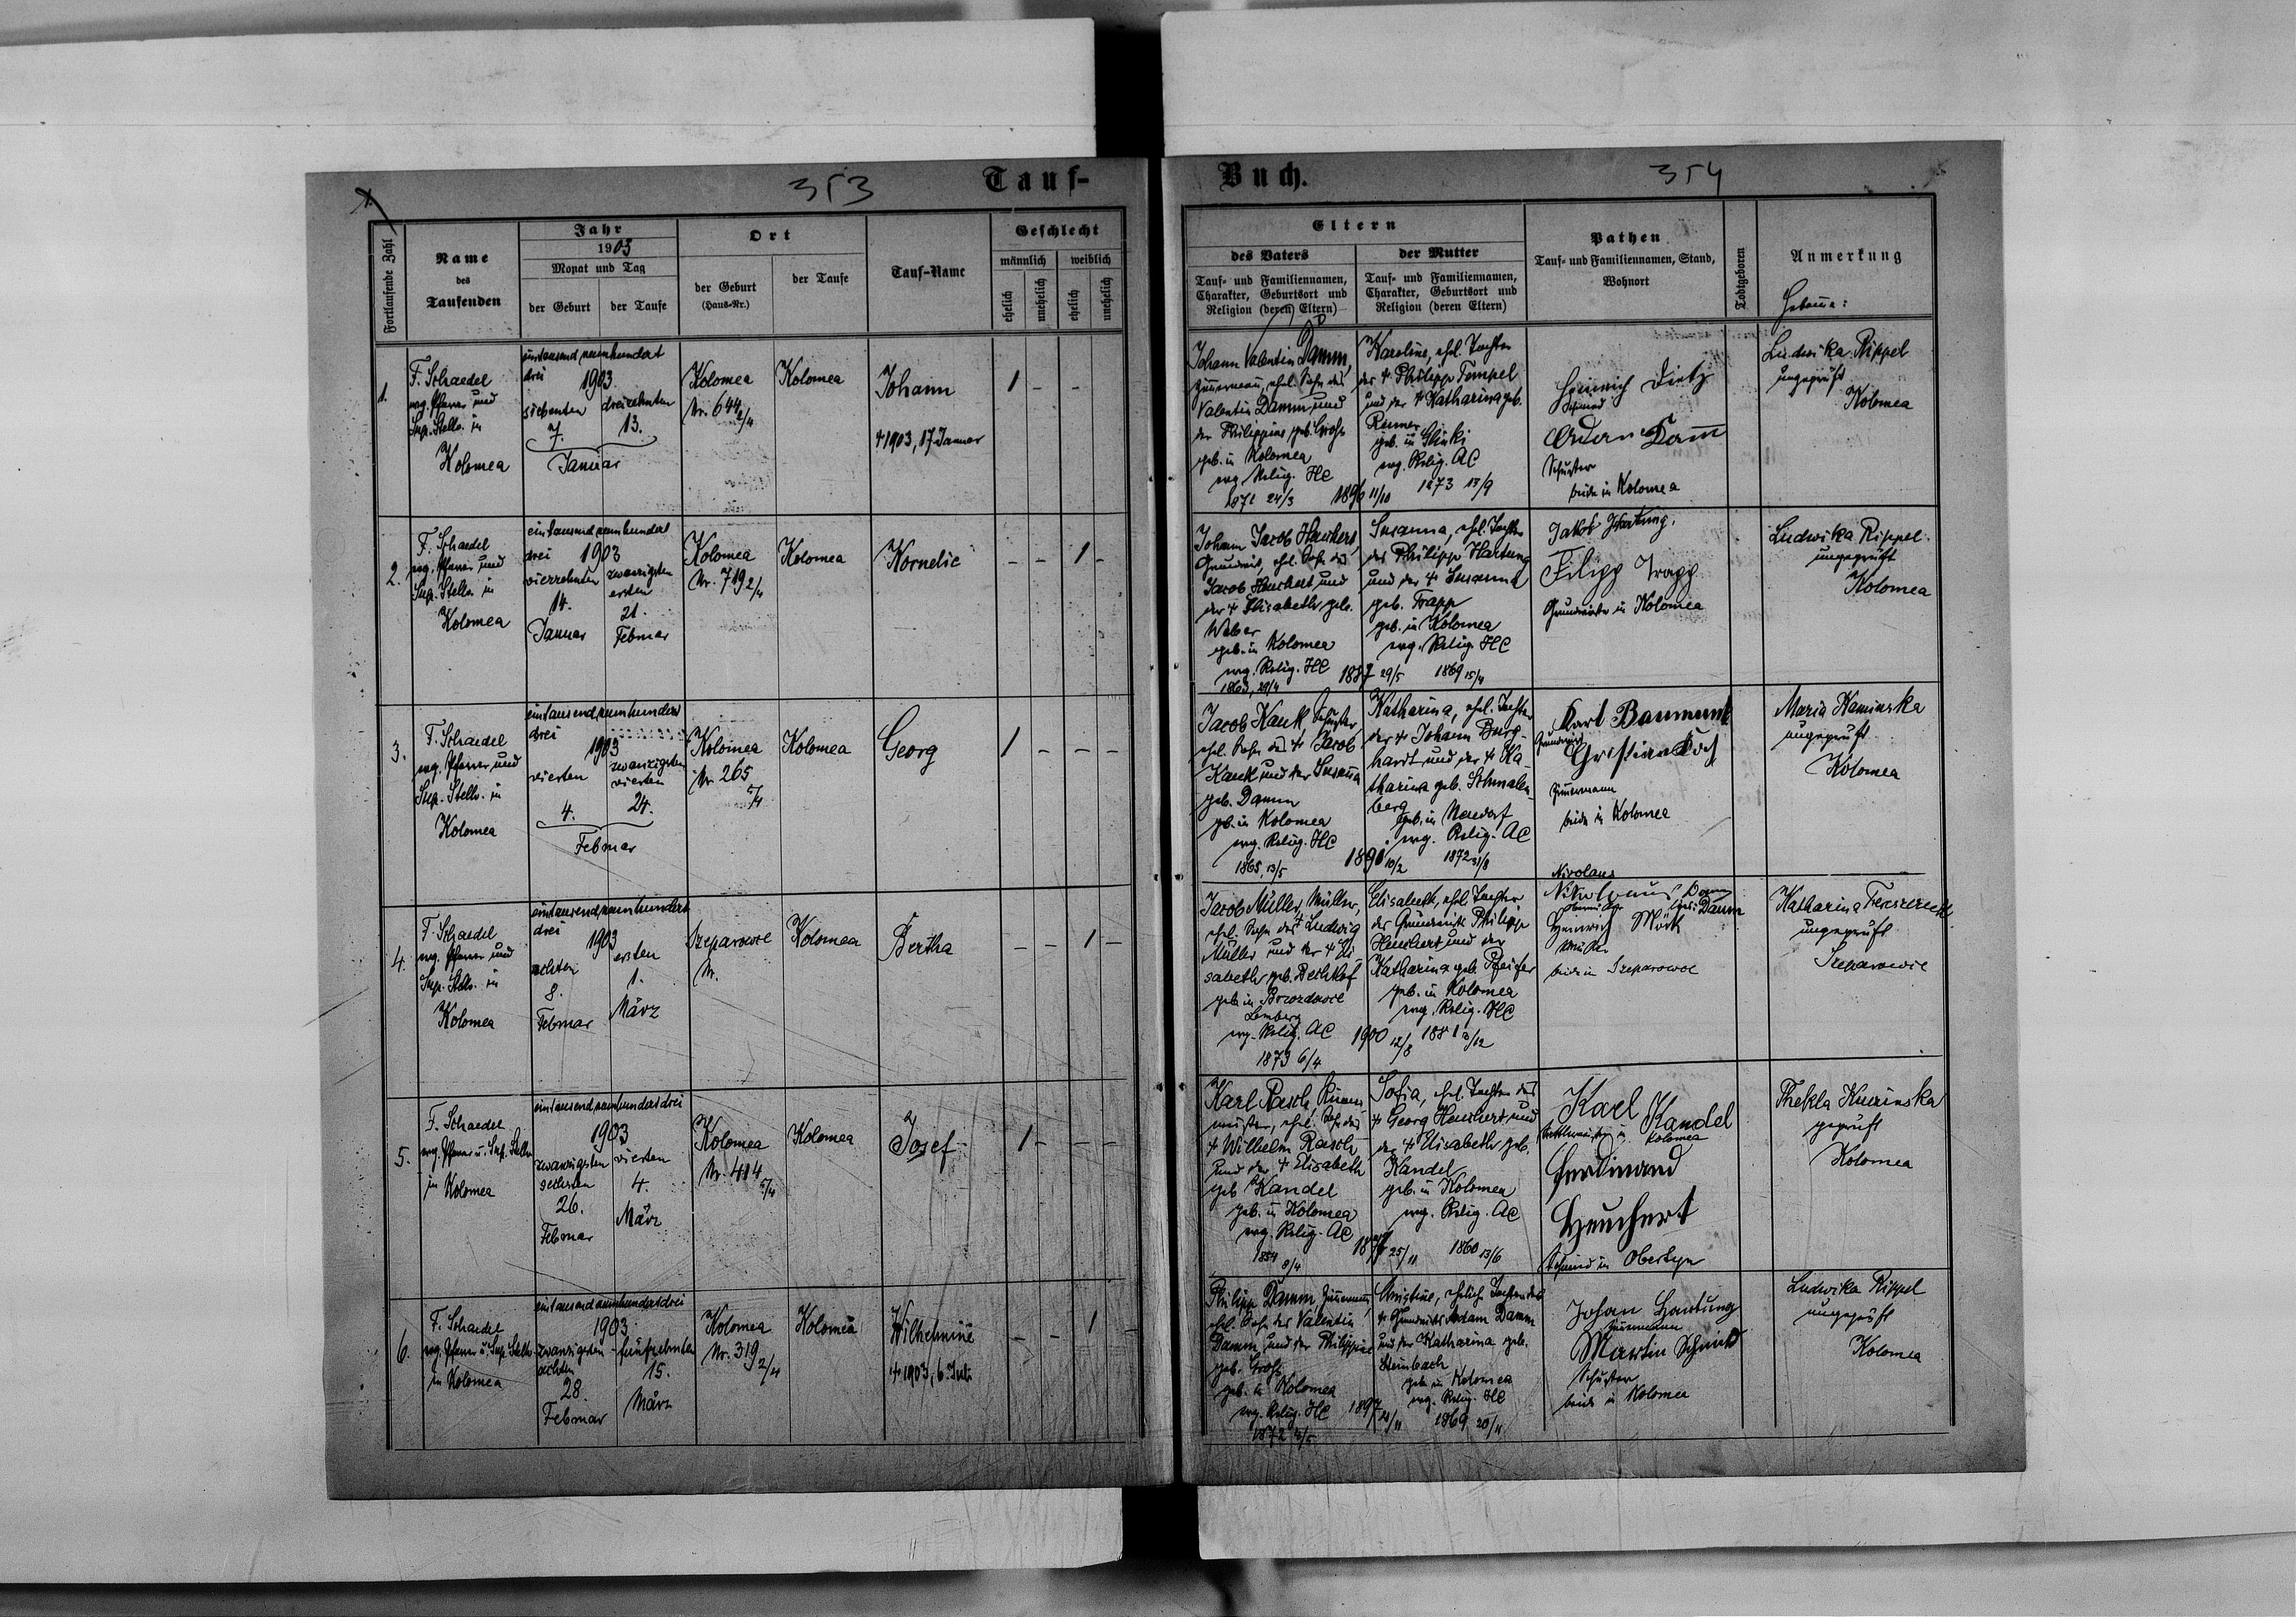 353
Tauf-
Fortlaufende Zahl
Name
des
Taufenden
Jahr
1903
Monat und Tag
der Geburt
der Taufe
Ort
der Geburt
(Haus-Nr.)
der Taufe
Tauf-Name
Geschlecht
männlich
weiblich
ehelich
unehelich
ehelich
unehelich
1.
F. Schaedel
evg. Pfarrer und
Sup. Stellv. in
Kolomea
eintausendneunhundert
drei 1903
siebenten dreizehnten
7. 13.
Januar
Kolomea
Nr. 644 2/4
Kolomea
Johann
+ 1903, 17 Januar
1 - - -
2.
F. Schaedel
evg. Pfarrer und
Sup. Stellv. in
Kolomea
eintausendneunhundert
drei 1903
vierzehnten zwanzigsten
ersten
14. 21.
Januar Februar
Kolomea
Nr. 719 2/4
Kolomea
Kornelie
- - 1 -
3.
F. Schaedel
evg. Pfarrer und
Sup. Stellv. in
Kolomea
eintausendneunhundert
drei
1903
vierten zwanzigsten
vierten
4. 24.
Februar
Kolomea
Nr. 265
Kolomea
Georg
1 - - -
4.
F. Schaedel
evg. Pfarrer und
Sup. Stellv. in
Kolomea
eintausendneunhundert
drei
1903
achten ersten
8. 1.
Februar März
Szeparowce
Nr.
Kolomea
Bertha
- - 1 -
5.
F. Schaedel
evg. Pfarrer u. Sup. Stellv.
in Kolomea
eintausendneunhundertdrei
1903
zwanzigsten vierten
sechsten
26. 4.
Februar März
Kolomea
Nr. 414
Kolomea
Josef
1 - - -
6.
F. Schaedel
evg. Pfarrer u. Sup. Stellv.
in Kolomea
eintausendneunhundertdrei
1903
zwanzigsten fünfzehnten
achten
28 15.
Februar März
Kolomea
Nr. 319 2/4
Kolomea
Wilhelmine
+ 1903, 6. Juli
- - 1 -
Buch.
354
Eltern
des Vaters
Tauf- und Familiennamen,
Charakter, Geburtsort und
Religion (deren Eltern)
der Mutter
Tauf- und Familiennamen,
Charakter, Geburtsort und
Religion (deren Eltern)
Pathen
Tauf- und Familiennamen, Stand,
Wohnort
Todtgeboren
Anmerkung
Johann Valentin Damm,
Zimmermann, ehel. Sohn des
Valentin Damm und
der Philippine geb. Gross
geb. in Kolomea
evg. Relig. HC
24/3
Karoline, ehel. Tochter
des + Philipp Tempel
und der + Katharina geb.
geb. in
evg. Relig. AC
11/10 1873 13/9
Heinrich Dietz
Schmied
Adam Damm
Schuster
beide in Kolomea
Ludwika Rippel
ungeprüft
Kolomea
Johann Jacob Heuchert,
Grundwirt, ehel. Sohn des
Jacob Heuchert und
der + Elisabeth geb.
Weber
geb. in Kolomea
evg. Relig. HC
29/4
Susanna, ehel. Tochter
des Philipp Hartung
und der + Susanna
geb. Trapp
geb. in Kolomea
evg. Relig. HC
1887 29/5 1869 15/4
Jakob Hartung.
Filipp Trapp
Grundwirte in Kolomea
Ludwika Rippel
ungeprüft
Kolomea
Jacob Kauk Schuster
ehel. Sohn des + Jacob
Kauk und der Susanna
geb. Damm
geb. in Kolomea
evg. Relig. HC
1865, 13/5
Katharina, ehel. Tochter
des + Johann Burg-
hardt und der + Ka-
tharina geb. Schmalen-
berg
geb. in Neudorf
evg. Relig. AC
10/2 1872 31/8
Karl Baumunk
Grundwirt
Christian Koch
Zimmermann
beide in Kolomea
Maria Kaminska
ungeprüft
Kolomea
Jacob Müller, Müller,
ehel. Sohn des + Ludwig
Müller und der + Eli-
sabeth geb. Bechtlof
geb. in
Lemberg
evg. Relig. AC
1873 6/4
Elisabeth, ehel. Tochter
des Grundwirts Philipp
Heuchert und der
Katharina geb. Pfeifer
geb. in Kolomea
evg. Relig. HC
1900 12/8 1881
Nicolaus
Damm
Heinrich Mörk
Müller
beide in Szeparowce
Katharina
ungeprüft
Szeparowce
Karl Rasch,
ehel. Sohn des
+ Wilhelm Rasch
und der + Elisabeth
geb. Kandel
geb. in Kolomea
evg. Relig. AC
1854 8/4
Sofia, ehel. Tochter des
+ Georg Heuchert und
der + Elisabeth geb.
Kandel
geb. in Kolomea
evg. Relig. AC
25/11 1860 13/6
Karl Kandel
in Kolomea
Ferdinand
Heuchert
Schmied in Obertyn
Thekla Kurinska
geprüft
Kolomea
Philipp Damm, Zimmermann,
ehel. Sohn des Valentin
Damm und der Philippine
geb. Gross
geb. in Kolomea
evg. Relig. HC
1872
Christine, eheliche Tochter des
+ Grundwirts Adam Damm
und der Katharina geb.
Steinbach
geb. in Kolomea
evg. Relig. HC
1897 1869 20/11
Johan Hartung
Zimmermann
Martin Schmid
Schuster
beide in Kolomea
Ludwika Rippel
ungeprüft
Kolomea